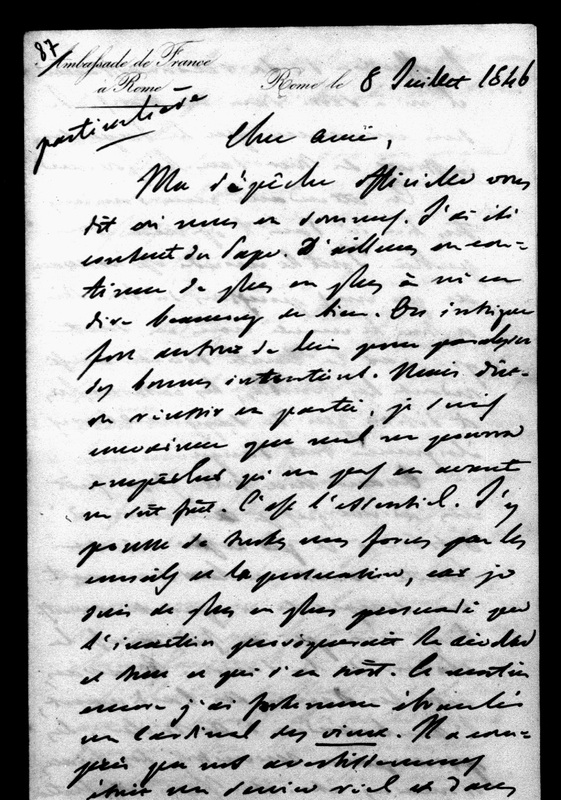 87
Ambassade de France
à Rome
Rome le 8 Juillet 1846
particulière
Cher ami,
Ma dépêche officielle vous
dit où nous en sommes. J'ai été
content du Pape. D'ailleurs on con-
tinue de plus en plus à m'en
dire beaucoup de bien. On intrigue
fort autour de lui pour paralyser
ses bonnes intentions. Mais dût-
on réussir en partie, je suis
convaincu que nul ne pourra
empêcher qu'un pas en avant
ne soit fait. C'est l'essentiel. J'y
pousse de toutes mes forces par les
conseils et la persuasion, car je
suis de plus en plus persuadé que
l'inaction provoquerait la
et tout ce qui s'en suit. Ce matin
encore j'ai fortement ébranlé
un Cardinal des vieux. Il a com-
pris que nos avertissemens
était un service réel et dans